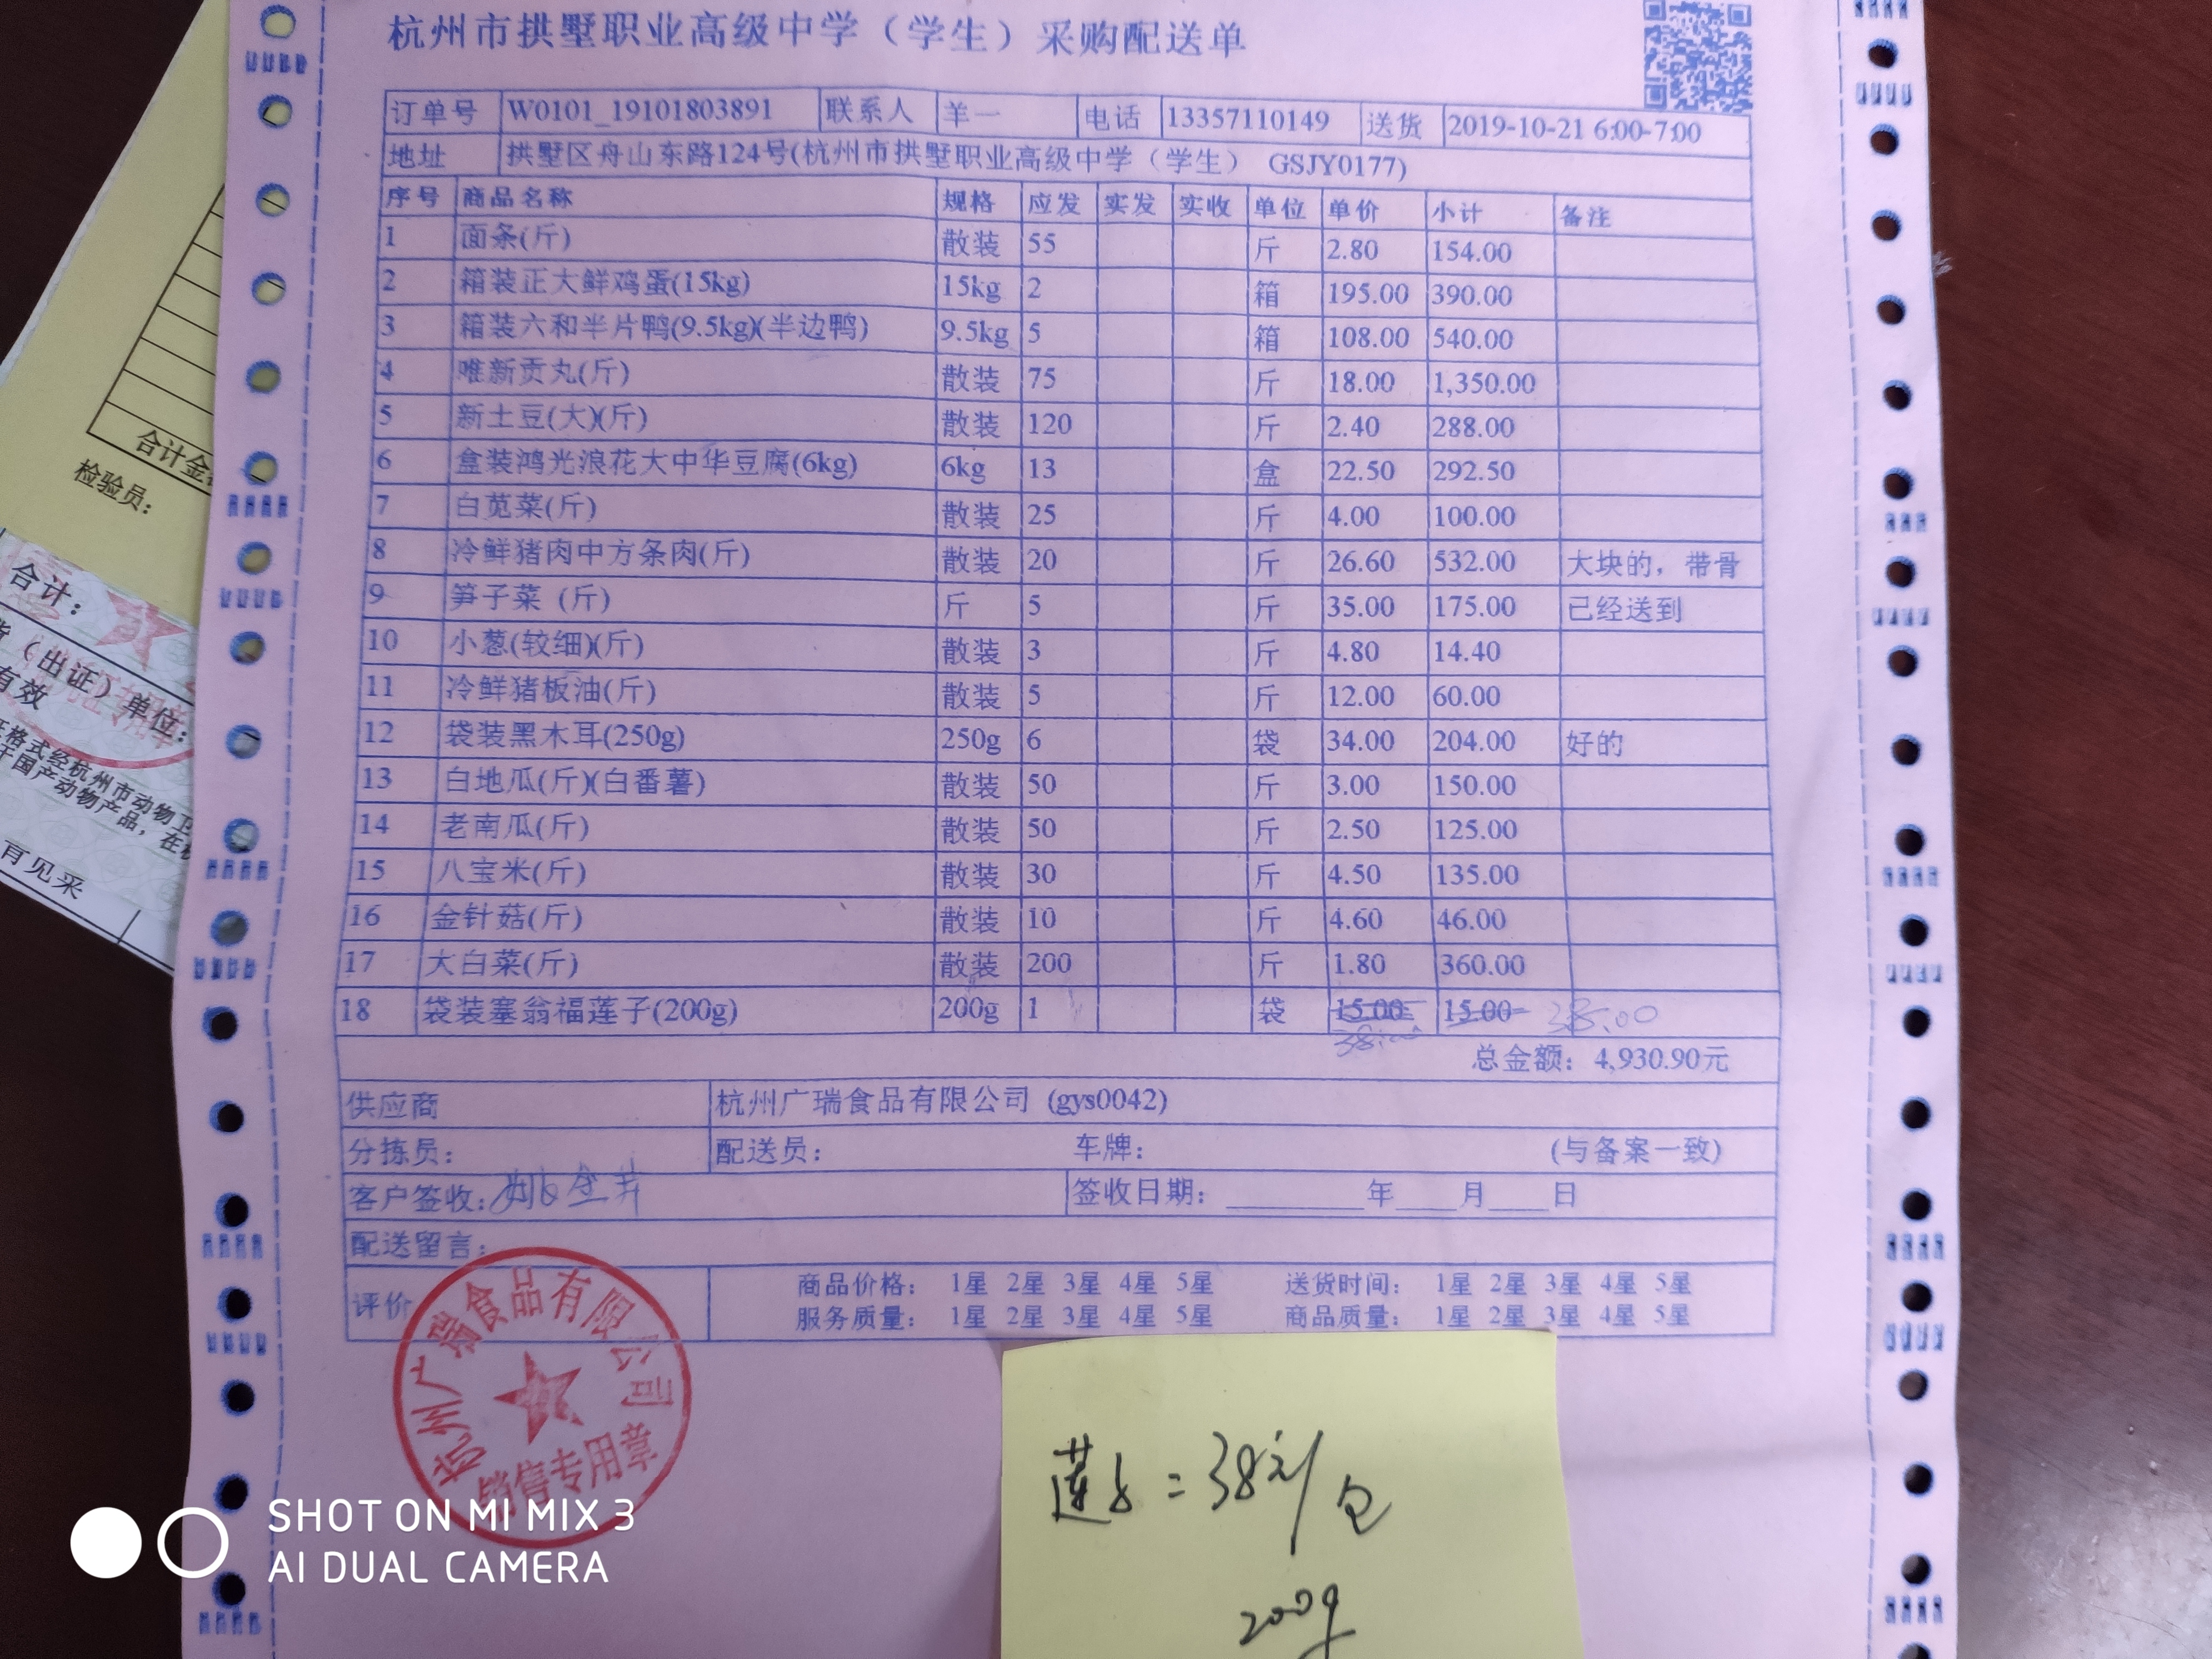 杭州市拱墅职业高级中学（学生）采购配送单
订单号 W0101_19101803891 联系人 羊一 电话 13357110149 送货 2019-10-21 6:00-7:00
地址 拱墅区舟山东路124号(杭州市拱墅职业高级中学（学生） GSJY0177)
序号 商品名称 规格 应发 实发 实收 单位 单价 小计 备注
1 面条(斤) 散装 55 斤 2.80 154.00
2 箱装正大鲜鸡蛋(15kg) 15kg 2 箱 195.00 390.00
3 箱装六和半片鸭(9.5kg)(半边鸭) 9.5kg 5 箱 108.00 540.00
4 唯新贡丸(斤) 散装 75 斤 18.00 1,350.00
5 新土豆(大)(斤) 散装 120 斤 2.40 288.00
6 盒装鸿光浪花大中华豆腐(6kg) 6kg 13 盒 22.50 292.50
7 白苋菜(斤) 散装 25 斤 4.00 100.00
8 冷鲜猪肉中方条肉(斤) 散装 20 斤 26.60 532.00 大块的，带骨
9 笋子菜 (斤) 斤 5 斤 35.00 175.00 已经送到
10 小葱(较细)(斤) 散装 3 斤 4.80 14.40
11 冷鲜猪板油(斤) 散装 5 斤 12.00 60.00
12 袋装黑木耳(250g) 250g 6 袋 34.00 204.00 好的
13 白地瓜(斤)(白番薯) 散装 50 斤 3.00 150.00
14 老南瓜(斤) 散装 50 斤 2.50 125.00
15 八宝米(斤) 散装 30 斤 4.50 135.00
16 金针菇(斤) 散装 10 斤 4.60 46.00
17 大白菜(斤) 散装 200 斤 1.80 360.00
18 袋装塞翁福莲子(200g) 200g 1 袋 15.00 15.00 38.00
38.00
总金额：4,930.90元
供应商 杭州广瑞食品有限公司 (gys0042)
分拣员： 配送员： 车牌： (与备案一致)
客户签收： 签收日期：________年____月____日
配送留言：
评价 商品价格： 1星 2星 3星 4星 5星 送货时间： 1星 2星 3星 4星 5星
服务质量： 1星 2星 3星 4星 5星 商品质量： 1星 2星 3星 4星 5星
杭州广瑞食品有限公司
销售专用章
莲子=38元/包
200g
合计金
检验员：
合计：
（出证）单位：
有效
格式经杭州市动物卫
国产动物产品，在
育见采
SHOT ON MI MIX 3
AI DUAL CAMERA